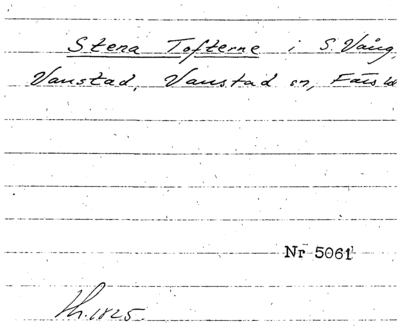 Stena Tofterne i S. Vång,
Vanstad, Vanstad sn, Färs h
Nr 5061
Lh. 1825.